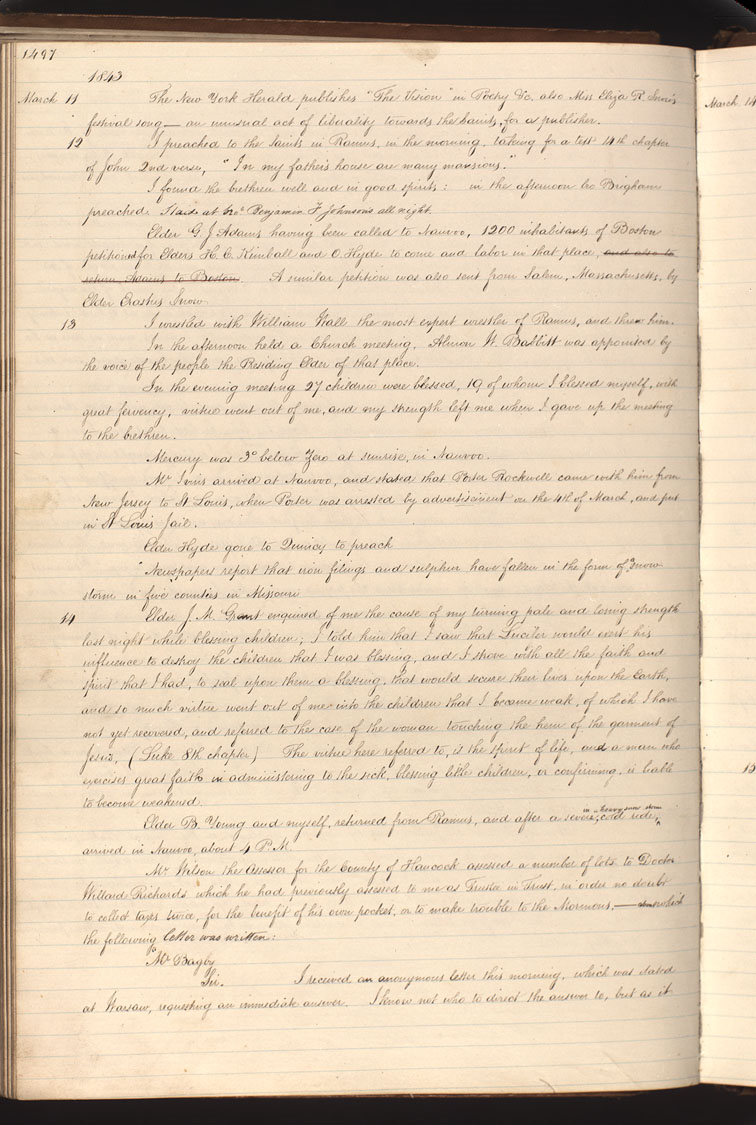 1497
1843
March 11 The New York Herald publishes "The Vision" in Poetry &c. also Miss Eliza R Snow's
festival song — an unusual act of liberality towards the Saints, for a publisher.
12 I preached to the Saints in Ramus, in the morning, taking for a text 14th chapter
of John 2nd verse, "In my father's house are many mansions."
I found the brethren well and in good spirits: in the afternoon bro Brigham
preached. Staid at bro. Benjamin F Johnson's all night.
Elder G J Adams having been called to Nauvoo, 1200 inhabitants of Boston
petitioned for Elders H. C. Kimball and O. Hyde to come and labor in that place, and also to
return Adams to Boston. A similar petition was also sent from Salem, Massachusetts, by
Elder Erastus Snow.
13 I wrestled with William Wall the most expert wrestler of Ramus, and threw him.
In the afternoon held a Church meeting, Almon W. Babbitt was appointed by
the voice of the people the Presiding Elder of that place.
In the evening meeting 27 children were blessed, 19 of whom I blessed myself, with
great fervency, virtue went out of me, and my strength left me when I gave up the meeting
to the brethren.
Mercury was 3° below Zero at sunrise, in Nauvoo.
Mr Ivins arrived at Nauvoo, and stated that Porter Rockwell came with him from
New Jersey to St Louis, when Porter was arrested by advertisement on the 4th of March, and put
in St Louis Jail.
Elder Hyde gone to Quincy to preach
Newspapers report that iron filings and sulphur have fallen in the form of snow
storm in five counties in Missouri
14 Elder J. M. Grant enquired of me the cause of my turning pale and losing strength
last night while blessing children; I told him that I saw that Lucifer would exert his
influence to destroy the children that I was blessing, and I strove with all the faith and
spirit that I had, to seal upon them a blessing, that would secure their lives upon the Earth,
and so much virtue went out of me into the children that I became weak, of which I have
not yet recovered, and referred to the case of the woman touching the hem of the garment of
Jesus, (Luke 8th chapter) The virtue here referred to, is the spirit of life, and a man who
exercises great faith in administering to the sick, blessing little children, or confirming, is liable
to become weakened.
Elder B. Young and myself, returned from Ramus, and after a severe, cold ride, in heavy snow storm
arrived in Nauvoo, about 4 P.M.
Mr Wilson the Assessor for the County of Hancock assessed a number of lots to Doctor
Willard Richards which he had previously assessed to me as Trustee in Trust, in order no doubt
to collect taxes twice, for the benefit of his own pocket, or to make trouble to the Mormons, — which
the following letter was written:
Mr Bagby
Sir. I received an anonymous letter this morning, which was dated
at Warsaw, requesting an immediate answer. I know not who to direct the answer to, but as it
March 14
15